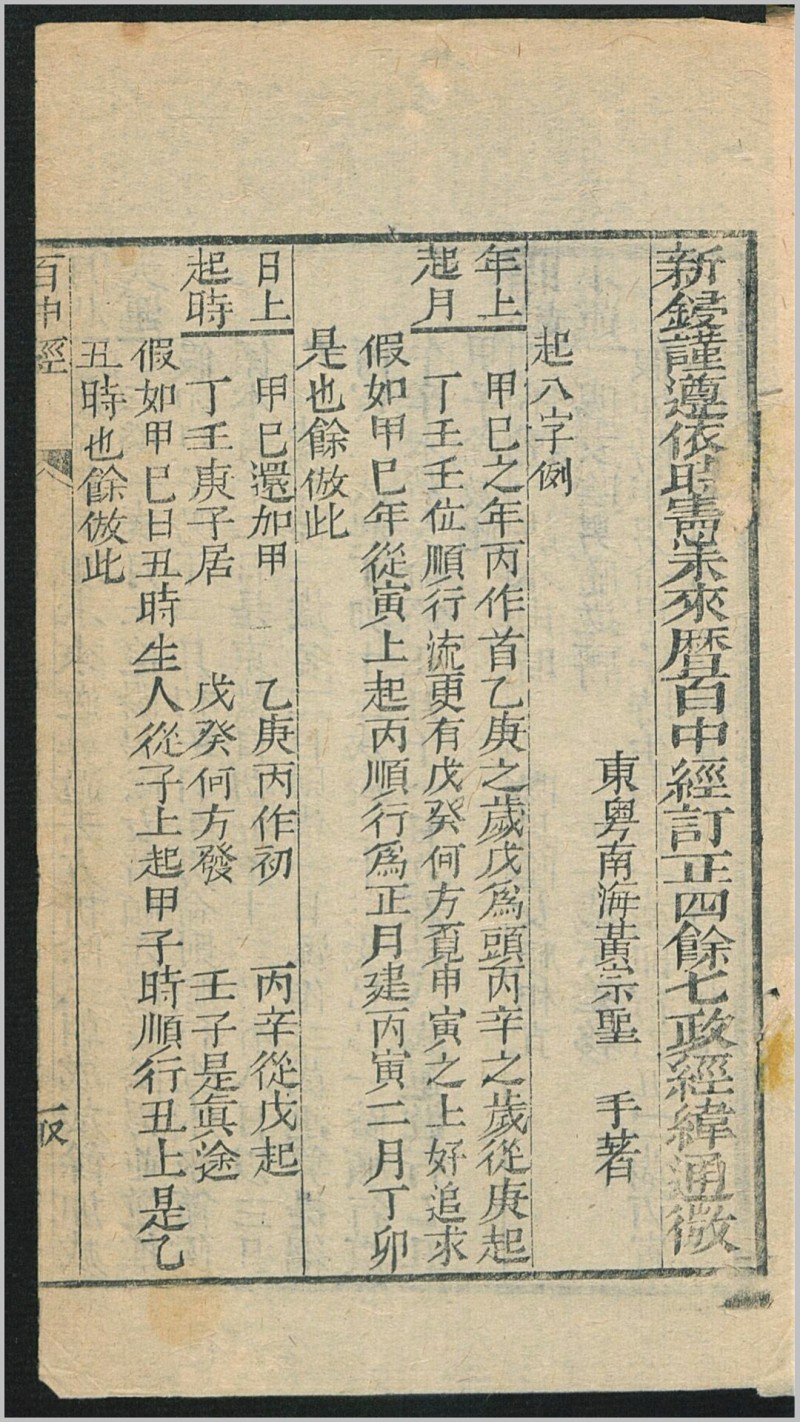 新鋟謹遵依時憲未來曆百中經訂正四餘七政經緯通微
東粤南海黃宗聖　手著
起八字例
年上
起月
甲巳之年丙作首乙庚之歲戊為頭丙辛之歲從庚起
丁壬壬位順行流更有戊癸何方覔甲寅之上好追求
假如甲巳年從寅上起丙順行為正月建丙寅二月丁卯
是也餘倣此
日上
起時
甲巳還加甲　乙庚丙作初　丙辛從戊起
丁壬庚子居　戊癸何方發　壬子是眞途
假如甲巳日丑時生人從子上起甲子時順行丑上是乙
丑時也餘倣此
百中經